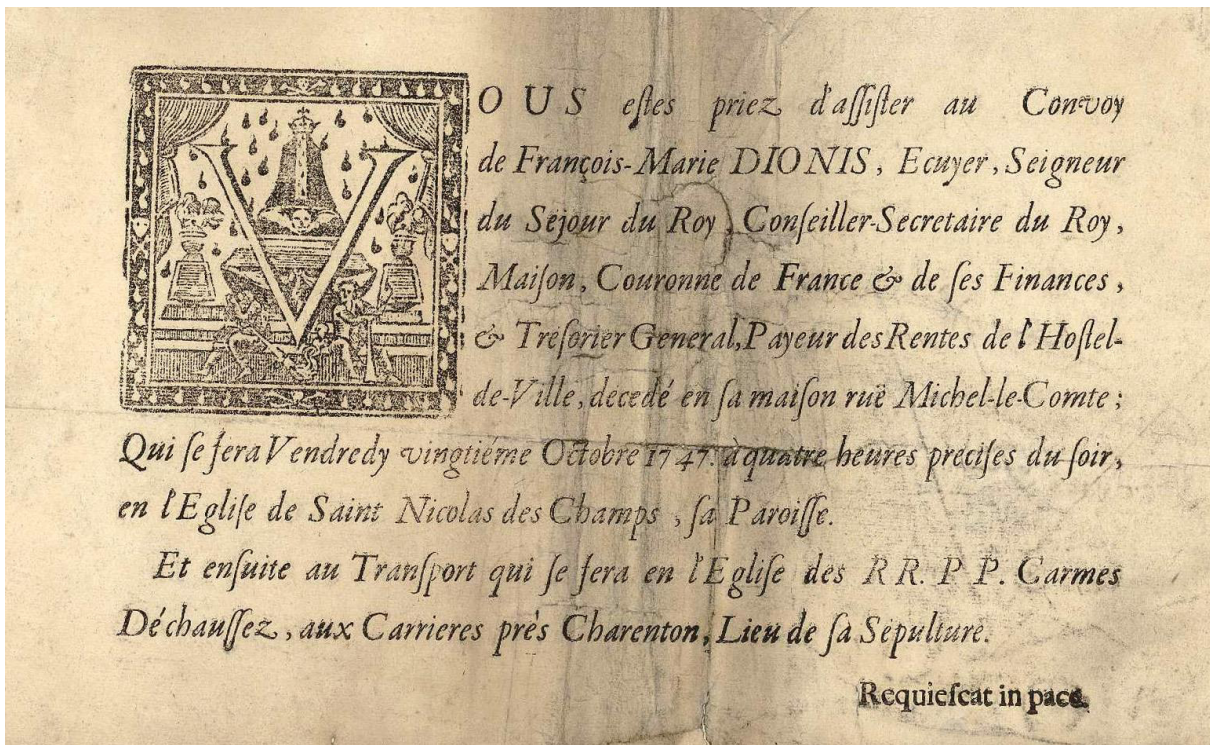 VOUS eſtes priez d'aſſiſter au Convoy
de François-Marie DIONIS, Ecuyer, Seigneur
du Séjour du Roy, Conſeiller-Secretaire du Roy,
Maiſon, Couronne de France & de ſes Finances,
& Tréſorier General, Payeur des Rentes de l'Hoſtel-
de-Ville, décedé en ſa maiſon ruë Michel-le-Comte;
Qui ſe fera Vendredy vingtiéme Octobre 1747. à quatre heures préciſes du ſoir,
en l'Egliſe de Saint Nicolas des Champs, ſa Paroiſſe.
Et enſuite au Tranſport qui ſe fera en l'Egliſe des RR. PP. Carmes
Déchauſſez, aux Carrieres près Charenton, Lieu de ſa Sépulture.
Requieſcat in pace.